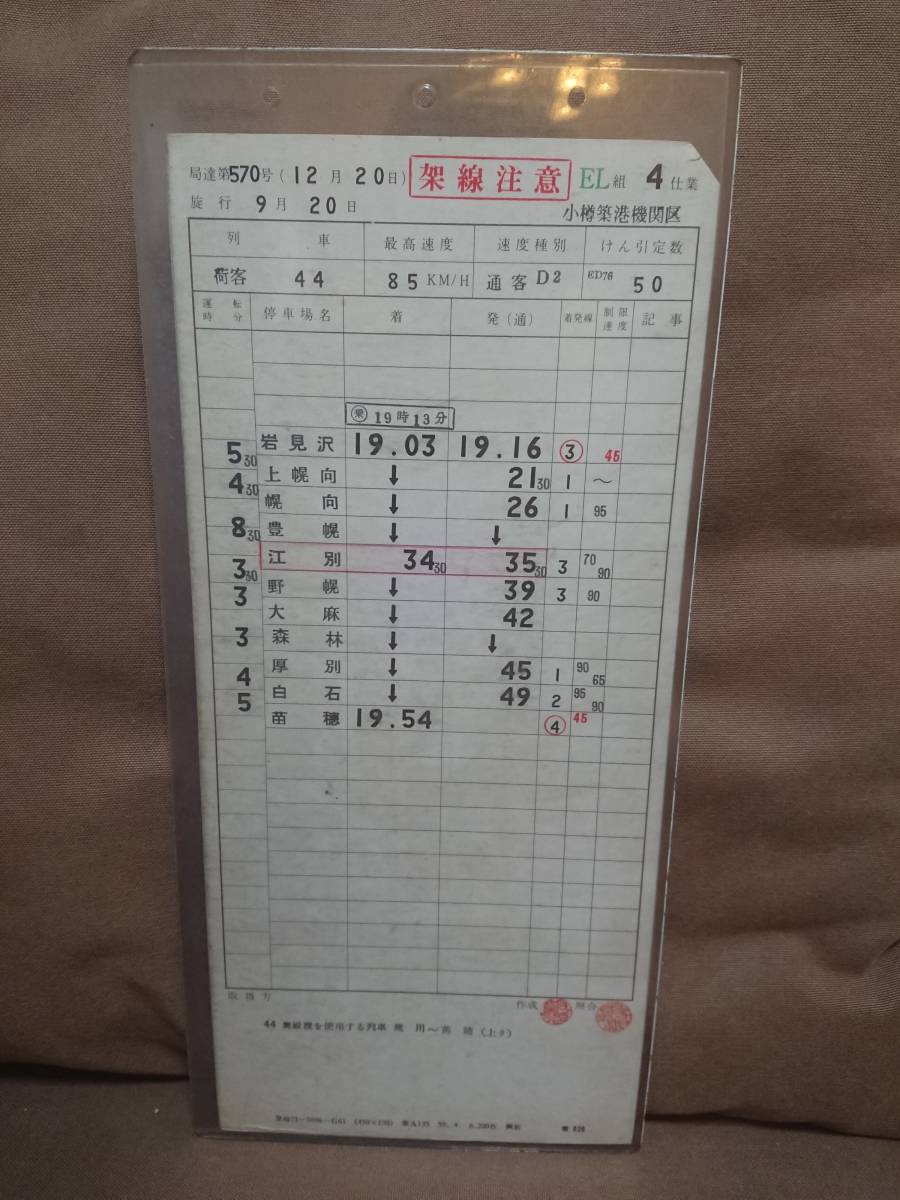 局達第570号(12月20日) 架線注意 EL組 4仕業
施行 9月 20日 小樽築港機関区
列車 最高速度 速度種別 けん引定数
荷客 44 85 KM/H 通客 D2 ED76 50
運転時分 停車場名 着 発(通) 着発線 制限速度 記事
乗 19時13分
岩見沢 19.03 19.16 ③ 45
5 30
上幌向 ↓ 21 30 1 〜
4 30
幌向 ↓ 26 1 95
豊幌 ↓ ↓
8 30
江別 34 30 35 30 3 70 90
3 30
野幌 ↓ 39 3 90
3
大麻 ↓ 42
森林 ↓ ↓
3
厚別 ↓ 45 1 90 65
4
白石 ↓ 49 2 95 90
5
苗穂 19.54 ④ 45
取扱方 作成 照合
44 無線機を使用する列車 滝川〜苗穂(上り)